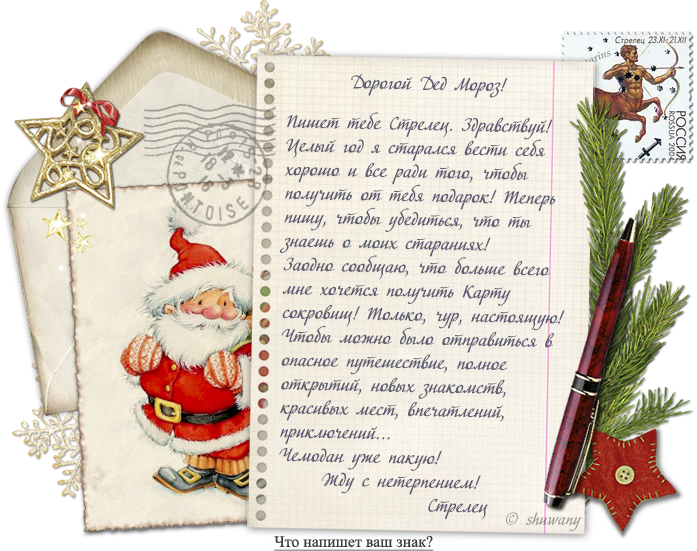 Дорогой Дед Мороз!
Пишет тебе Стрелец. Здравствуй!
Целый год я старался вести себя
хорошо и все ради того, чтобы
получить от тебя подарок! Теперь
пишу, чтобы убедиться, что ты
знаешь о моих стараниях!
Заодно сообщаю, что больше всего
мне хочется получить Карту
сокровищ! Только, чур, настоящую!
Чтобы можно было отправиться в
опасное путешествие, полное
открытий, новых знакомств,
красивых мест, впечатлений,
приключений...
Чемодан уже пакую!
Жду с нетерпением!
Стрелец
© shuwany
Стрелец 23.XI-21.XII
РОССИЯ
ROSSIJA 2004
PONTOISE
Что напишет ваш знак?